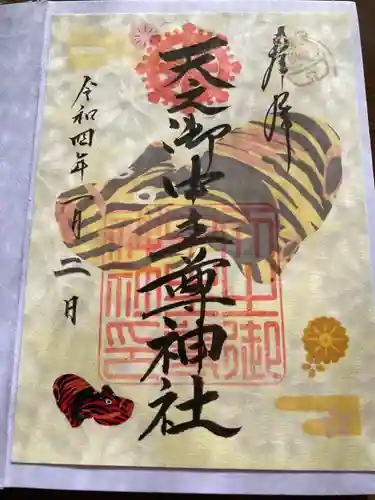 奉拝
天之御中主尊神社
令和四年一月二日